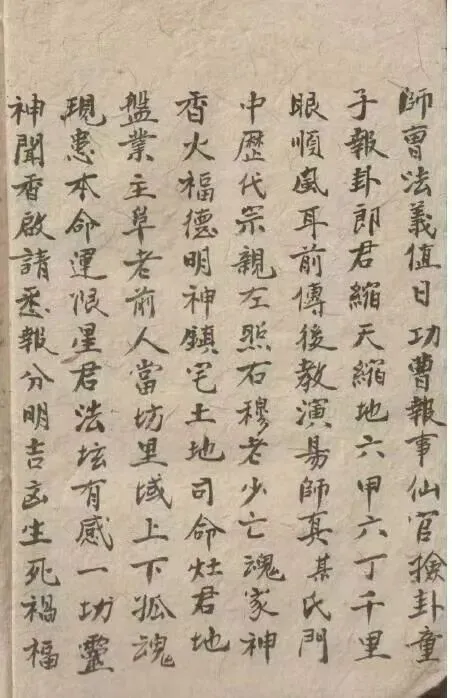 師曹法義值日功曹報事仙官撿卦童
子報卦郎君縮天縮地六甲六丁千里
眼順風耳前傳後教演易師真某氏門
中歷代宗親左照右穆老少亡魂家神
香火福德明神鎮宅土地司命灶君地
盤業主阜老前人當坊里域上下孤魂
現患本命運限星君法坛有感一切靈
神聞香啟請悉報分明吉凶生死禍福